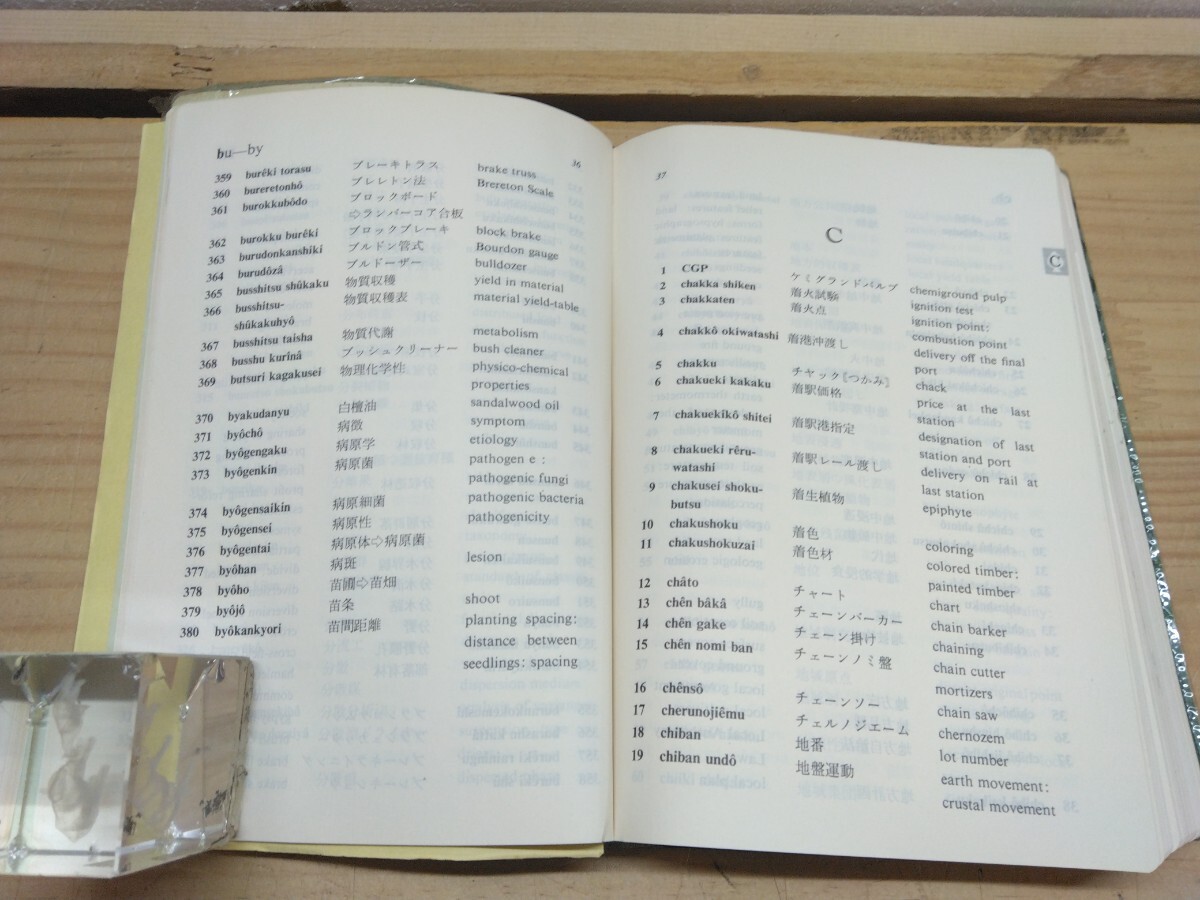 bu—by 36
359 burêki torasu ブレーキトラス brake truss
360 bureretonhô ブレレトン法 Brereton Scale
361 burokkubôdo ブロックボード
⇨ランバーコア合板
362 burokku burêki ブロックブレーキ block brake
363 burudonkanshiki ブルドン管式 Bourdon gauge
364 burudôzâ ブルドーザー bulldozer
365 busshitsu shûkaku 物質収穫 yield in material
366 busshitsu- 物質収穫表 material yield-table
shûkakuhyô
367 busshitsu taisha 物質代謝 metabolism
368 busshu kurînâ ブッシュクリーナー bush cleaner
369 butsuri kagakusei 物理化学性 physico-chemical
properties
370 byakudanyu 白檀油 sandalwood oil
371 byôchô 病徴 symptom
372 byôgengaku 病原学 etiology
373 byôgenkin 病原菌 pathogen e :
pathogenic fungi
374 byôgensaikin 病原細菌 pathogenic bacteria
375 byôgensei 病原性 pathogenicity
376 byôgentai 病原体⇨病原菌
377 byôhan 病斑 lesion
378 byôho 苗圃⇨苗畑
379 byôjô 苗条 shoot
380 byôkankyori 苗間距離 planting spacing:
distance between
seedlings: spacing
37
C
C
1 CGP ケミグランドパルプ chemiground pulp
2 chakka shiken 着火試験 ignition test
3 chakkaten 着火点 ignition point:
combustion point
4 chakkô okiwatashi 着港沖渡し delivery off the final
port
5 chakku チャック[つかみ] chack
6 chakueki kakaku 着駅価格 price at the last
station
7 chakuekikô shitei 着駅港指定 designation of last
station and port
8 chakueki rêru- 着駅レール渡し delivery on rail at
watashi last station
9 chakusei shoku- 着生植物 epiphyte
butsu
10 chakushoku 着色 coloring
11 chakushokuzai 着色材 colored timber:
painted timber
12 châto チャート chart
13 chên bâkâ チェーンバーカー chain barker
14 chên gake チェーン掛け chaining
15 chên nomi ban チェーンノミ盤 chain cutter
mortizers
16 chênsô チェーンソー chain saw
17 cherunojiêmu チェルノジエーム chernozem
18 chiban 地番 lot number
19 chiban undô 地盤運動 earth movement:
crustal movement